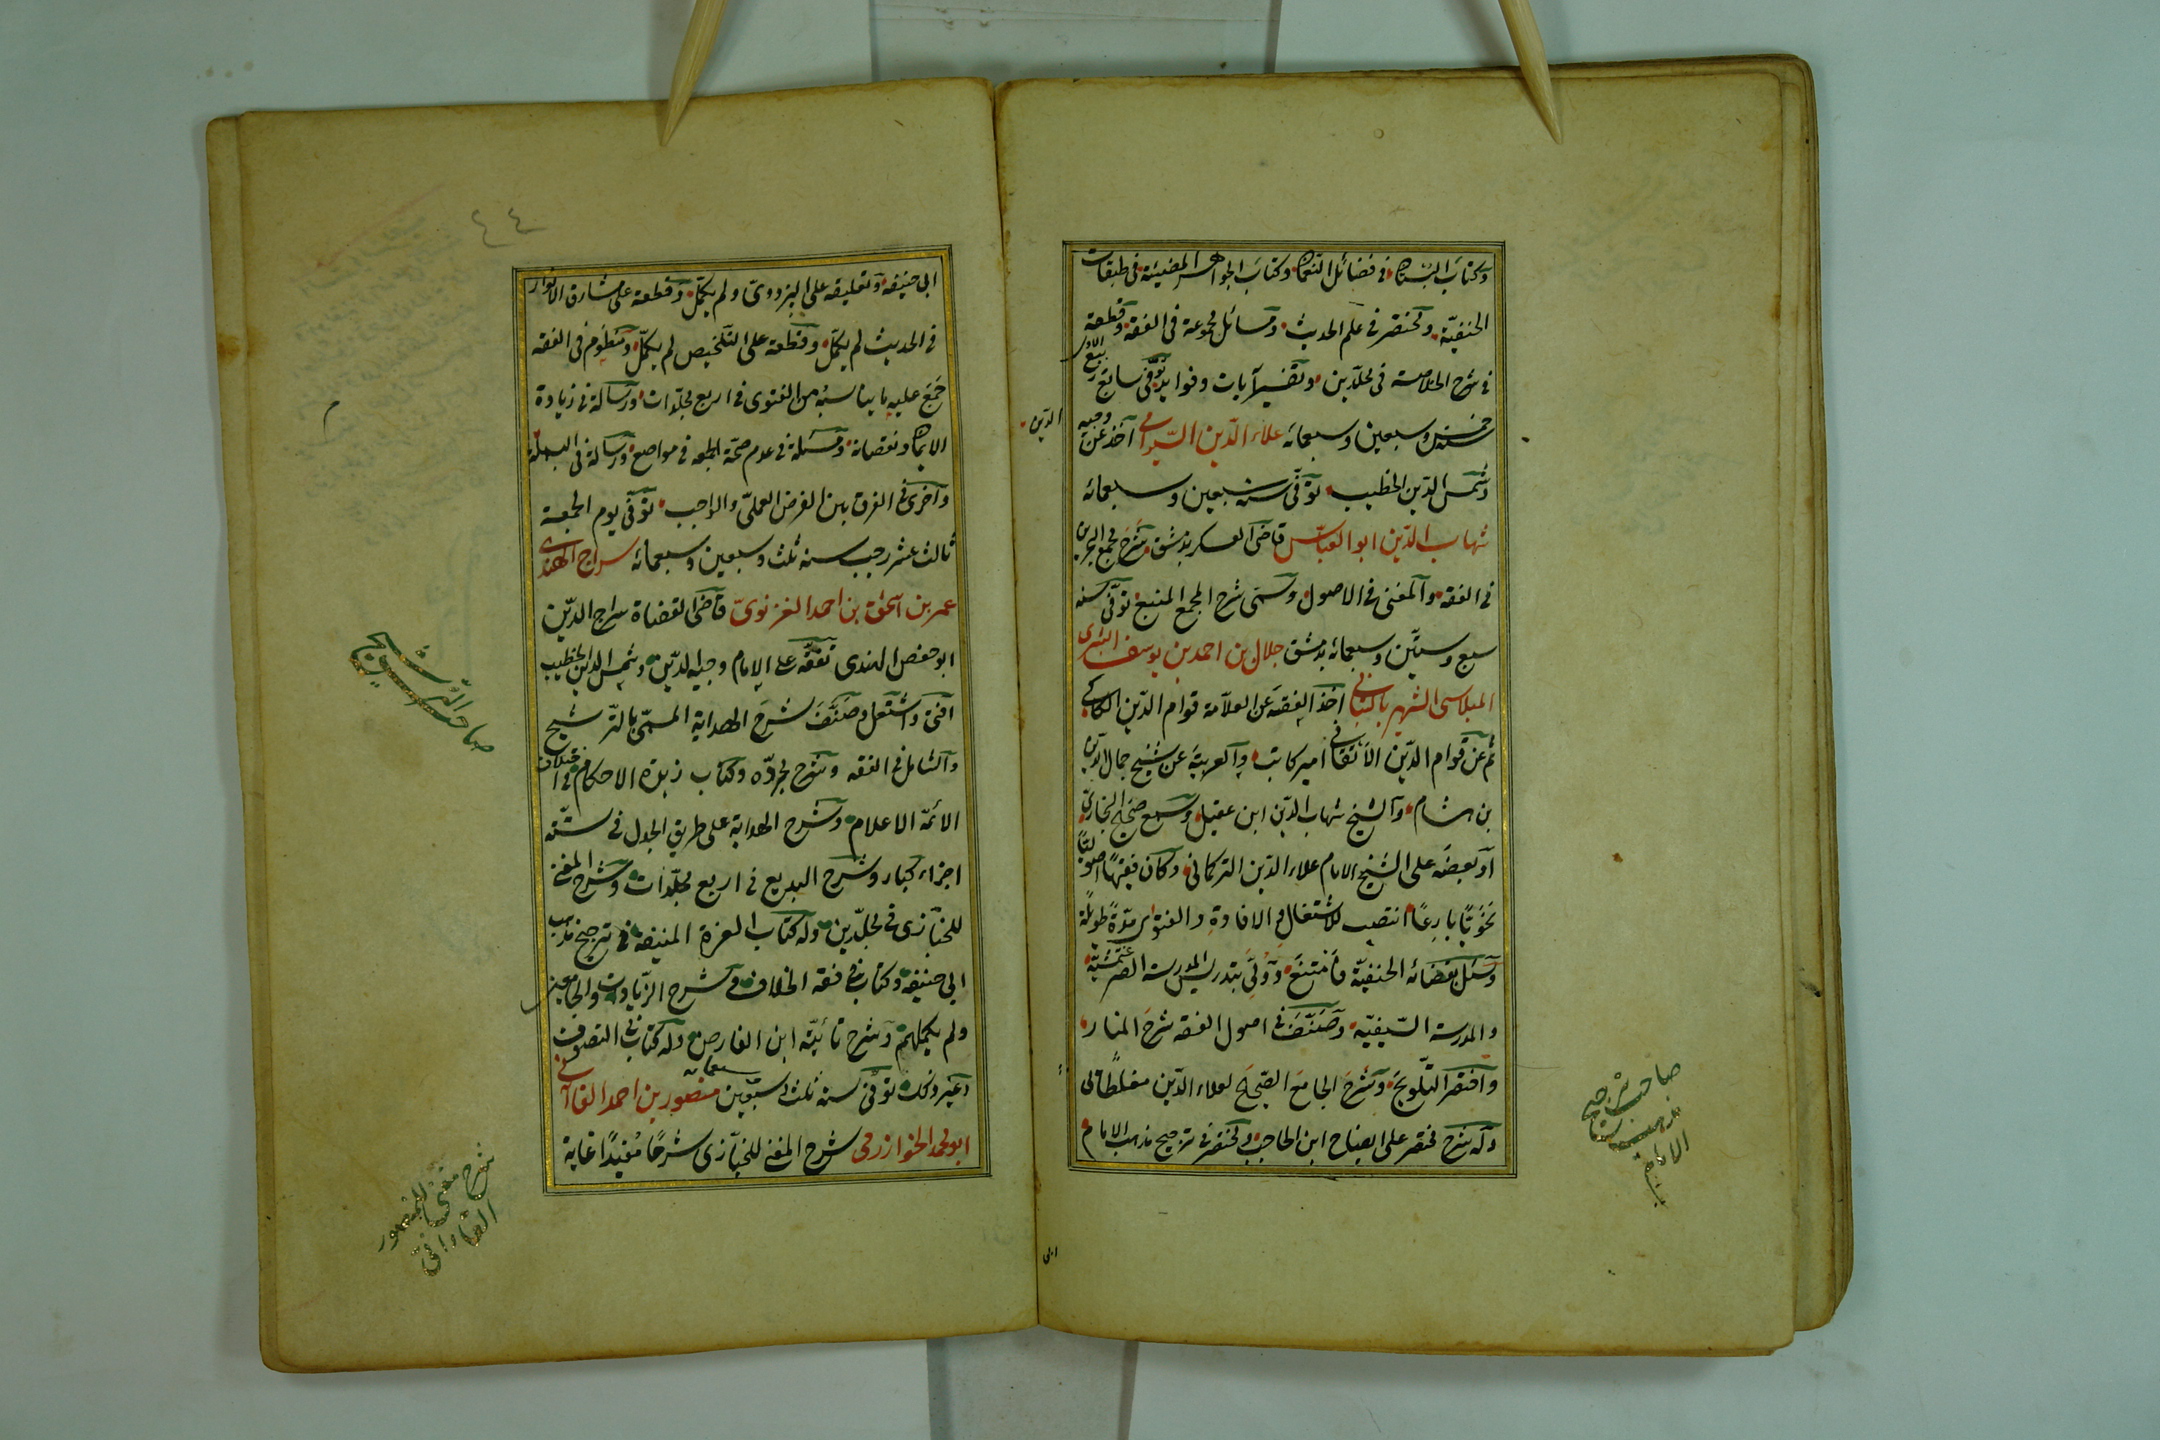 وكتاب البستان في فضائل النعمان وكتاب الجواهر المضيئة في طبقات
الحنفيّة ومختصر في علم الحديث ومسائل مجموعة في الفقه وقطعة
في شرح الخلاصة في مجلّدين وتفسير آيات وفوايد توفّى سابع ربيع الاول
سنة خمس وسبعين وسبعمائه علاء الدّين السّيرامى اخذ عن وجيه
الدّين
وشمس الدّين الخطيب توفّى سنة سبعين وسبعمائه
شهاب الدّين ابو العبّاس قاضى العسكر بدمشق شرح مجمع البحرين
في الفقه والمغنى في الاصول وسمّى شرح المجمع المنبع توفّى سنه
سبع وستّين وسبعمائه بدمشق جلال بن احمد بن يوسف التيرى
الشهير بالتبانى اخذ الفقه عن العلاّمة قوام الدّين الكاكى
ثم عن قوام الدّين الاتقانى امير كاتب والعربيّة عن شيخ جمال الدّين
بن هشام والشيخ شهاب الدّين ابن عقيل وسمع صحيح البخارىّ
او بعضه على الشيخ الامام علاء الدّين التركمانى وكان فقيهًا اصوليًّا
نحويًّا بارعًا انتصب للاشتغال والافادة والفتوى مدّةً طويلة
وسئل بقضائه الحنفيّة فامتنع وولّى بتدريس المدرسة الصرغتمشيّة
والمدرسة السّيفيّه وصنّف في اصول الفقه شرح المنار
واختصر التّلويح وشرح الجامع الصّحيح لعلاء الدّين مغلطاى
وله شرح مختصر على ايضاح ابن الحاجب ومختصر في ترجيح مذهب الامام
صاحب ترجيح
مذهب
الامام
ابى
٤٤
ابى حنيفه وتعليقه على البزدوىّ ولم يكمّل وقطعة على مشارق الانوار
في الحديث لم يكمّل وقطعة على التلخيص لم يكمّل ومنظوم في الفقه
جمع عليه ما يناسبه من الفتوى في اربع مجلّدات ورسالة في زيادة
الايمان ونقصانه ومسئلة في عدم صحّة الجمعه في مواضع ورسالة في البسملة
واخرى في الفرق بين الفرض العملىّ والواجب توفّى يوم الجمعة
ثالث عشر رجب سنه ثلث وسبعين وسبعمائه سراج الهندى
عمر بن اسحق بن احمد الغزنوىّ قاضى القضاة سراج الدّين
ابو حفص الهندى تفقّه على الامام وجيه الدّين وشمس الدين الخطيب
افتى واشتغل وصنّف شرح الهداية المسمّى بالتّرشيح
والشامل في الفقه وشرح مجرّده وكتاب زبدة الاحكام في اختلاف
الائمّة الاعلام وشرح الهداية على طريق الجدل في ستّه
اجزاء كبار وشرح البديع في اربع مجلّدات وشرح المغنى
للخبّازى في مجلّدين وله كتاب الغرة المنيفة في ترجيح مذهب
ابى حنيفه وكتاب في فقه الخلاف وفي شرح الزّيادت والجامعين
ولم يكملهم وشرح تائيّه ابن الفارض وله كتاب في التصوف
وغير ذلك توفّى سنه ثلث وسبعين سبعمايه منصور بن احمد القاآنى
ابو محمد الخوارزمى شرح المغنى للخبّازى شرحًا مفيدًا غاية
صاحب الترشيح
شرح مغنى لمنصور